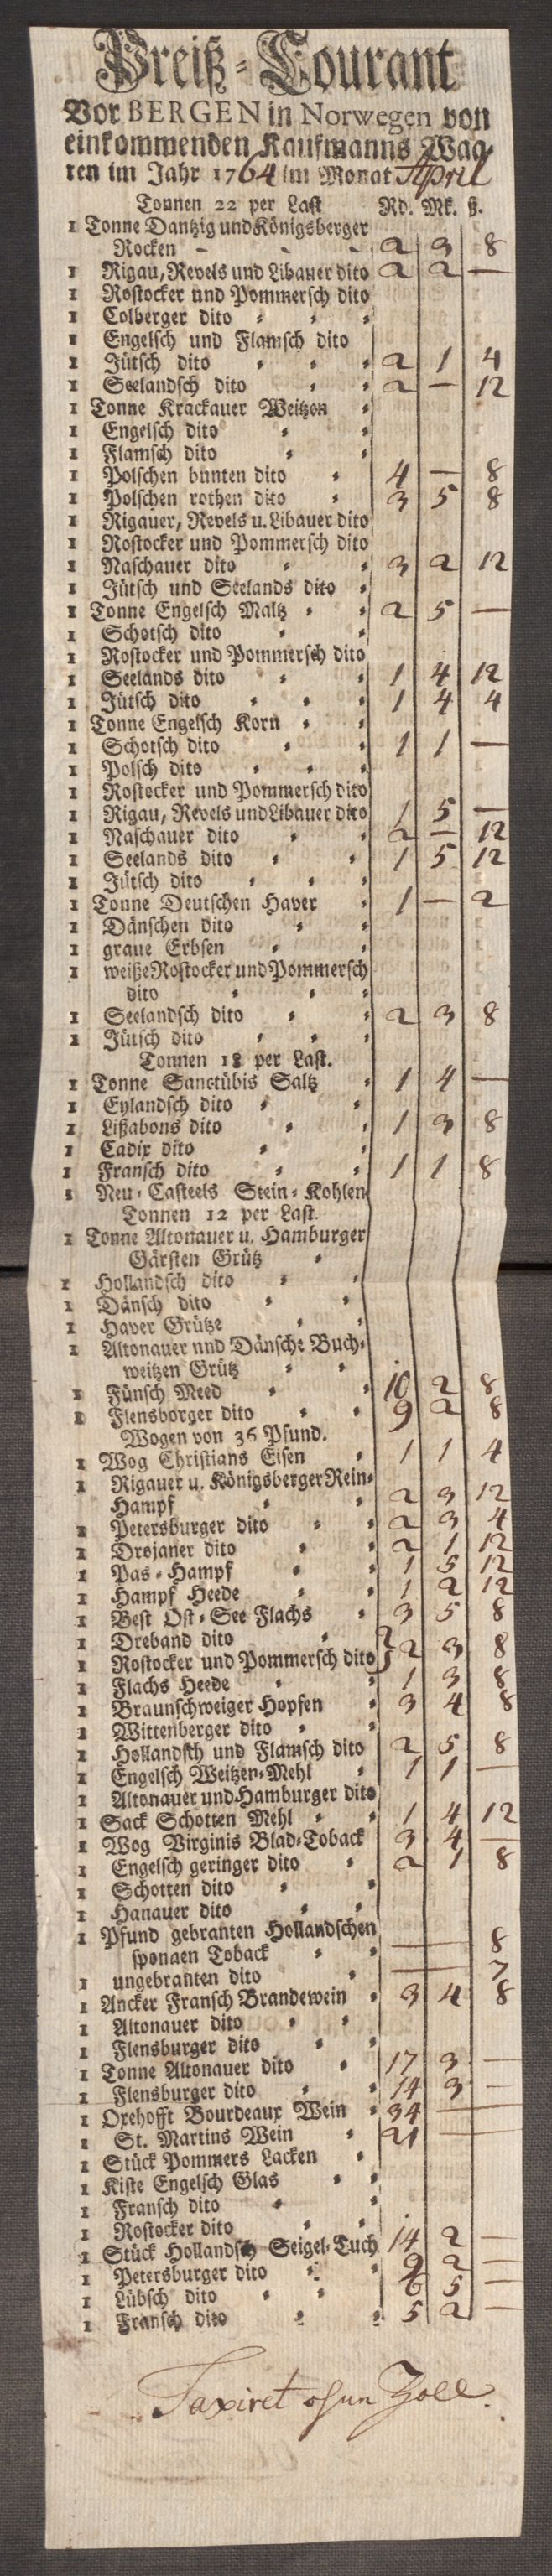 Preiß-Courant
Vor BERGEN in Norwegen von
einkommenden Kaufmanns Waa-
ren im Jahr 1764 im Monat April
Tonnen 22 per Last Rd. Mk. ß.
1 Tonne Dantzig und Königsberger
Rocken - - - 2 3 8
1 Rigau, Revels und Libauer dito 2 2 —
1 Rostocker und Pommersch dito
1 Colberger dito
1 Engelsch und Flamsch dito
1 Jütsch dito 2 1 4
1 Seelandsch dito 2 — 12
1 Tonne Krackauer Weitzen
1 Engelsch dito
1 Flamsch dito
1 Polschen bunten dito 4 — 8
1 Polschen rothen dito 3 5 8
1 Rigauer, Revels u. Libauer dito
1 Rostocker und Pommersch dito
1 Naschauer dito 3 2 12
1 Jütsch und Seelands dito
1 Tonne Engelsch Maltz 2 5 —
1 Schotsch dito
1 Rostocker und Pommersch dito
1 Seelands dito 1 4 12
1 Jütsch dito 1 4 4
1 Tonne Engelsch Korn
1 Schotsch dito 1 1 —
1 Polsch dito
1 Rostocker und Pommersch dito
1 Rigau, Revels und Libauer dito 1 5 —
1 Naschauer dito 2 — 12
1 Seelands dito 1 5 12
1 Jütsch dito
1 Tonne Deutschen Haver 1 — 2
1 Dänschen dito
1 graue Erbsen
1 weiße Rostocker und Pommersch
dito
1 Seelandsch dito 2 3 8
1 Jütsch dito
Tonnen 18 per Last.
1 Tonne Sanctübis Saltz 1 4 —
1 Eylandsch dito
1 Lißabons dito 1 3 8
1 Cadix dito
1 Fransch dito 1 1 8
1 Neu-Casteels Stein-Kohlen
Tonnen 12 per Last.
1 Tonne Altonauer u. Hamburger
Gärsten Grütz
1 Hollandsch dito
1 Dänsch dito
1 Haver Grütze
1 Altonauer und Dänsche Buch-
weitzen Grütz
1 Fünsch Meed 10 2 8
1 Flensborger dito 9 2 8
Wogen von 36 Pfund.
1 Wog Christians Eisen 1 1 4
1 Rigauer u. Königsberger Rein-
Hampf 2 3 12
1 Petersburger dito 2 3 4
1 Drojaner dito 2 1 12
1 Pas-Hampf 1 5 12
1 Hampf Heede 1 2 12
1 Best Ost-See Flachs 3 5 8
1 Dreband dito
1 Rostocker und Pommersch dito } 2 3 8
1 Flachs Heede 1 3 8
1 Braunschweiger Hopfen 3 4 8
1 Wittenberger dito
1 Hollandsch und Flamsch dito 2 5 8
1 Engelsch Weitzen-Mehl 1 1 —
1 Altonauer und Hamburger dito
1 Sack Schotten Mehl 1 4 12
1 Wog Virginis Blad-Toback 3 4 —
1 Engelsch geringer dito 2 1 8
1 Schotten dito
1 Hanauer dito
1 Pfund gebranten Hollandschen
sponaen Toback — — 8
1 ungebranten dito — — 7
1 Ancker Fransch Brandewein 3 4 8
1 Altonauer dito
1 Flensburger dito
1 Tonne Altonauer dito 17 3 —
1 Flensburger dito 14 3 —
1 Oxehofft Bourdeaux Wein 34 — —
1 St. Martins Wein 21 — —
1 Stück Pommers Lacken
1 Kiste Engelsch Glas
1 Fransch dito
1 Rostocker dito
1 Stück Hollandsch Seigel-Tuch 14 2 —
1 Petersburger dito 9 2 —
1 Lübsch dito 6 5 —
1 Fransch dito 5 2 —
Taxiret ohun Zoll.